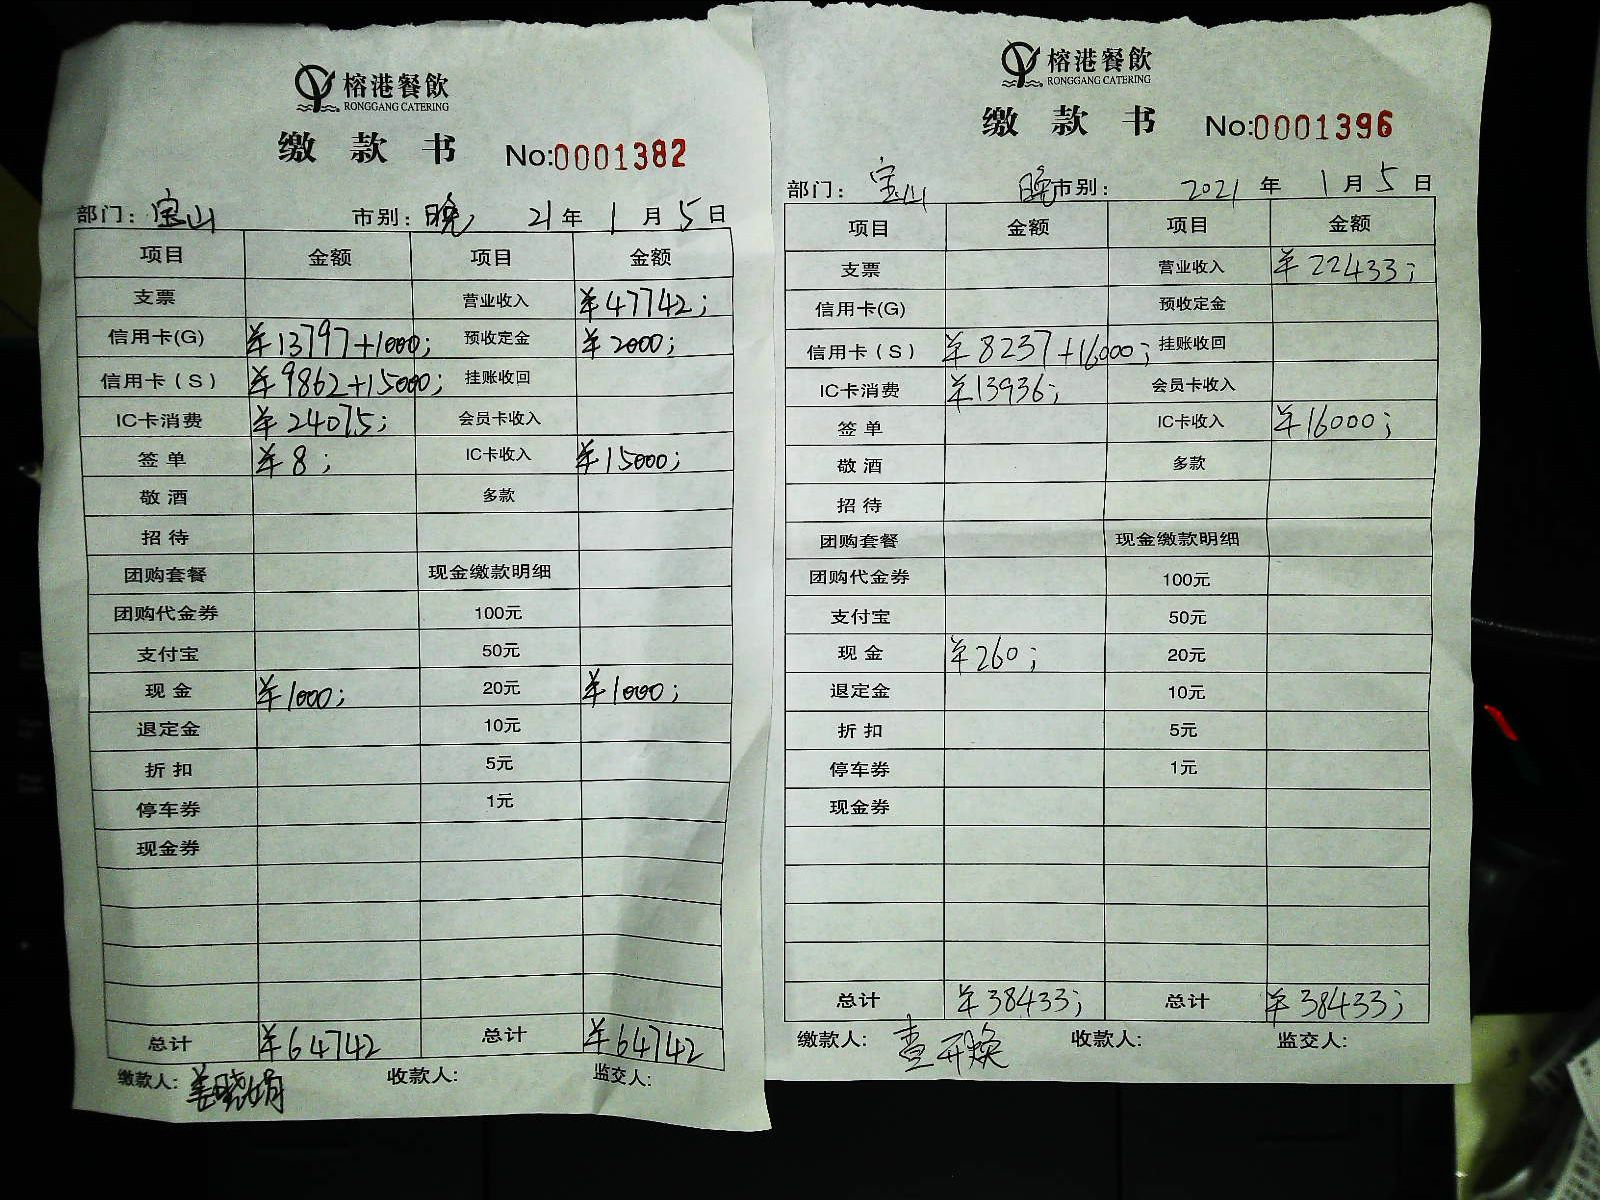 榕港餐飲
RONGGANG CATERING
缴款书 No:0001382
部门：宝山 市别：晚 21年1月5日
项目 金额 项目 金额
支票 营业收入 ¥47742;
信用卡(G) ¥13797+1000; 预收定金 ¥2000;
信用卡（S） ¥9862+15000; 挂账收回
IC卡消费 ¥24075; 会员卡收入
签单 ¥8; IC卡收入 ¥15000;
敬酒 多款
招待
团购套餐 现金缴款明细
团购代金券 100元
支付宝 50元
现金 ¥1000; 20元 ¥1000;
退定金 10元
折扣 5元
停车券 1元
现金券
总计 ¥64742 总计 ¥64742
缴款人：姜晓娟 收款人: 监交人:
榕港餐飲
RONGGANG CATERING
缴款书 No:0001396
部门：宝山 晚市别： 2021年1月5日
项目 金额 项目 金额
支票 营业收入 ¥22433;
信用卡(G) 预收定金
信用卡（S） ¥8237+16000; 挂账收回
IC卡消费 ¥13936; 会员卡收入
签单 IC卡收入 ¥16000;
敬酒 多款
招待
团购套餐 现金缴款明细
团购代金券 100元
支付宝 50元
现金 ¥260; 20元
退定金 10元
折扣 5元
停车券 1元
现金券
总计 ¥38433; 总计 ¥38433;
缴款人: 查开焕 收款人: 监交人: